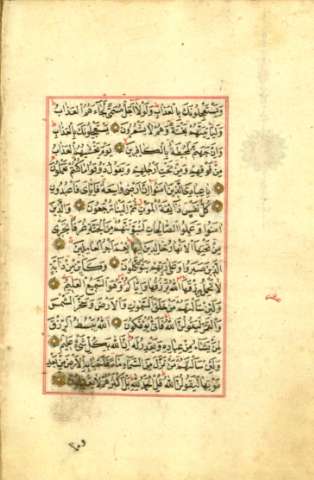 وَيَسْتَعْجِلُونَكَ بِالْعَذَابِ وَلَوْلَا اَجَلٌ مُسَمًّى لَجَاءَهُمُ الْعَذَابُ
وَلَيَأْتِيَنَّهُمْ بَغْتَةً وَهُمْ لَا يَشْعُرُونَ يَسْتَعْجِلُونَكَ بِالْعَذَابِ
وَاِنَّ جَهَنَّمَ لَمُحِيطَةٌ بِالْكَافِرِينَ يَوْمَ يَغْشٰيهُمُ الْعَذَابُ
مِنْ فَوْقِهِمْ وَمِنْ تَحْتِ اَرْجُلِهِمْ وَيَقُولُ ذُوقُوا مَا كُنْتُمْ تَعْمَلُونَ
يَا عِبَادِيَ الَّذِينَ اٰمَنُوا اِنَّ اَرْضِي وَاسِعَةٌ فَاِيَّايَ فَاعْبُدُونِ
كُلُّ نَفْسٍ ذَائِقَةُ الْمَوْتِ ثُمَّ اِلَيْنَا تُرْجَعُونَ وَالَّذِينَ
اٰمَنُوا وَعَمِلُوا الصَّالِحَاتِ لَنُبَوِّئَنَّهُمْ مِنَ الْجَنَّةِ غُرَفًا تَجْرِي
مِنْ تَحْتِهَا الْاَنْهَارُ خَالِدِينَ فِيهَا نِعْمَ اَجْرُ الْعَامِلِينَ
الَّذِينَ صَبَرُوا وَعَلٰى رَبِّهِمْ يَتَوَكَّلُونَ وَكَاَيِّنْ مِنْ دَابَّةٍ
لَا تَحْمِلُ رِزْقَهَا اللّٰهُ يَرْزُقُهَا وَاِيَّاكُمْ وَهُوَ السَّمِيعُ الْعَلِيمُ
وَلَئِنْ سَاَلْتَهُمْ مَنْ خَلَقَ السَّمٰوَاتِ وَالْاَرْضَ وَسَخَّرَ الشَّمْسَ
وَالْقَمَرَ لَيَقُولُنَّ اللّٰهُ فَاَنّٰى يُؤْفَكُونَ اَللّٰهُ يَبْسُطُ الرِّزْقَ
لِمَنْ يَشَاءُ مِنْ عِبَادِهِ وَيَقْدِرُ لَهُ اِنَّ اللّٰهَ بِكُلِّ شَيْءٍ عَلِيمٌ
وَلَئِنْ سَاَلْتَهُمْ مَنْ نَزَّلَ مِنَ السَّمَاءِ مَاءً فَاَحْيَا بِهِ الْاَرْضَ مِنْ بَعْدِ
مَوْتِهَا لَيَقُولُنَّ اللّٰهُ قُلِ الْحَمْدُ لِلّٰهِ بَلْ اَكْثَرُهُمْ لَا يَعْقِلُونَ
وما